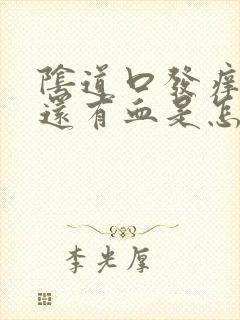 陰道口發癢
還有血是怎
李光厚